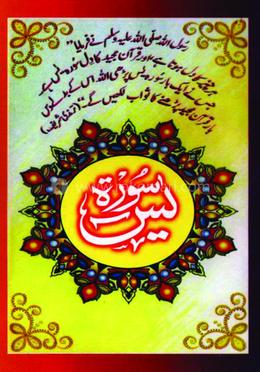 رسول اللہ صلی اللہ علیہ وسلم نے فرمایا"
ہر چیز کا دل ہوتا ہے اور قرآن مجید کا دل سورہ یٰس ہے
جس نے ایک بار سورہ یٰس پڑھی اللہ اس کے بدلے دس
بار قرآن مجید پڑھنے کا ثواب لکھیں گے" (ترمذی شریف)
سورة
يس